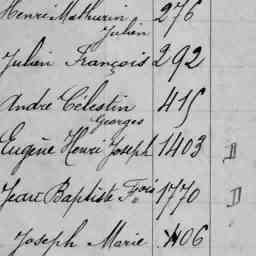 Henri Mathurin 276
Julien
Julien François 292
André Célestin 415
Georges
Eugène Henri Joseph 1403 D
Jean Baptiste Fçois 1770 D
Joseph Marie 406